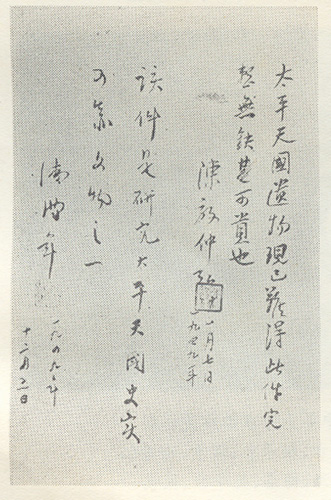 太平天國遺物現已難得此件完
整無缺甚可貴也
陳敬仲
一月七日
一九四九年
該件是研究太平天國史实
的文物之一
年
一九四九年
十二月二日